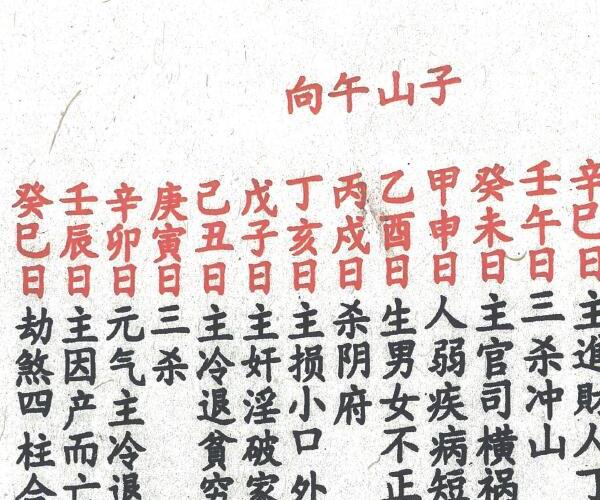 子山午向
辛巳日主進財人丁
壬午日三杀冲山
癸未日主官司横祸
甲申日人弱疾病短
乙酉日生男女不正
丙戍日杀阴府
丁亥日主损小口外
戊子日主奸淫破家
己丑日主冷退貧穷
庚寅日三杀
辛卯日元气主冷退
壬辰日主因产而亡
癸巳日劫煞四柱合